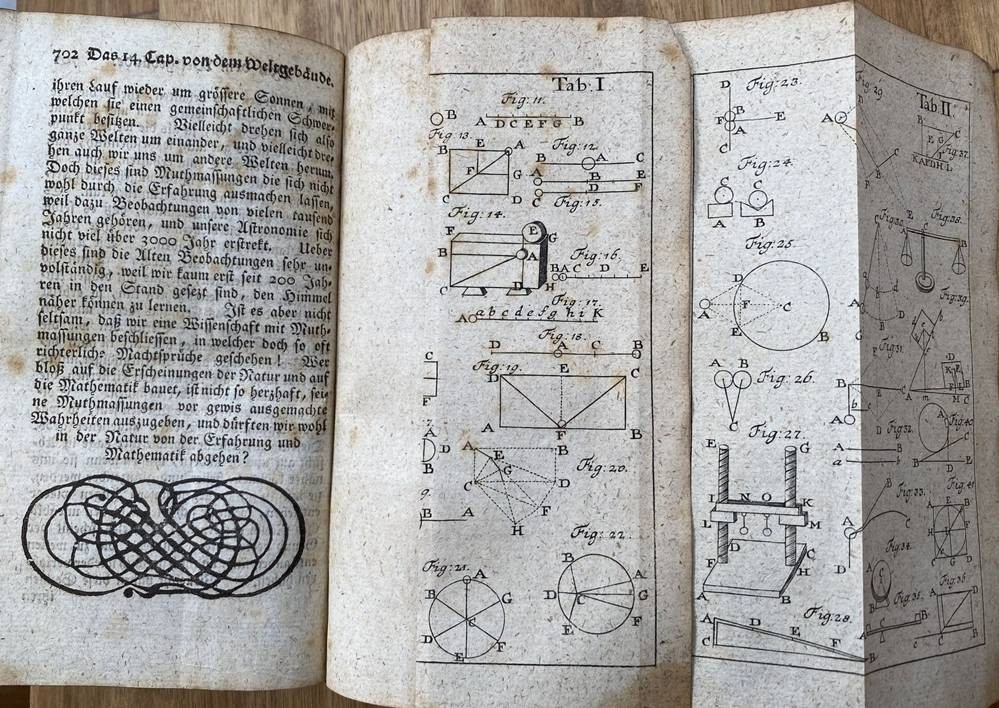 702 Das 14. Cap. von dem Weltgebäude.
ihren Lauf wieder um grössere Sonnen, mit
welchen sie einen gemeinschaftlichen Schwer-
punkt besitzen. Vielleicht drehen sich also
ganze Welten um einander, und vielleicht dre-
hen auch wir uns um andere Welten herum.
Doch dieses sind Muthmassungen die sich nicht
wohl durch die Erfahrung ausmachen lassen,
weil dazu Beobachtungen von vielen tausend
Jahren gehören, und unsere Astronomie sich
nicht viel über 3000 Jahr erstrekt. Ueber
dieses sind die Alten Beobachtungen sehr un-
volständig, weil wir kaum erst seit 200 Jah-
ren in den Stand gesezt sind, den Himmel
näher können zu lernen. Ist es aber nicht
seltsam, daß wir eine Wissenschaft mit Muth-
massungen beschliessen, in welcher doch so oft
richterliche Machtsprüche geschehen! Wer
bloß auf die Erscheinungen der Natur und auf
die Mathematik bauet, ist nicht so herzhaft, sei-
ne Muthmassungen vor gewis ausgemachte
Wahrheiten auszugeben, und dürften wir wohl
in der Natur von der Erfahrung und
Mathematik abgehen?
Tab. I
Fig. 11.
B A D C E F G B
Fig. 13.
B E A
F G
C D
Fig. 12.
B A C
A B E
C D F
Fig. 15.
Fig. 14.
F E G
B A
C D H
Fig. 16.
B A C D E
Fig. 17.
A a b c d e f g h i K
Fig. 18.
D A C B
Fig. 19.
D E C
A F B
C
F
A
D
B
Fig. 20.
A B
E G
C D
F
H
9.
B A
Fig. 21.
A
B G
C
D F
E
Fig. 22.
B A
D C G
E F
Fig. 23.
D
B
F E
A
C
Fig. 24.
C C
A B
Fig. 25.
D
A F C
E B
A B
Fig. 26.
C
Fig. 27.
E G
I N O K
L M
D C
F H
A B
Fig. 28.
A D E F
C B
Tab. II.
Fig. 29.
A
B C
E G
Fig. 37.
K A F D H L
Fig. 30.
Fig. 38.
Fig. 39.
Fig. 31.
Fig. 32.
Fig. 40.
Fig. 33.
Fig. 41.
Fig. 34.
Fig. 35.
Fig. 36.